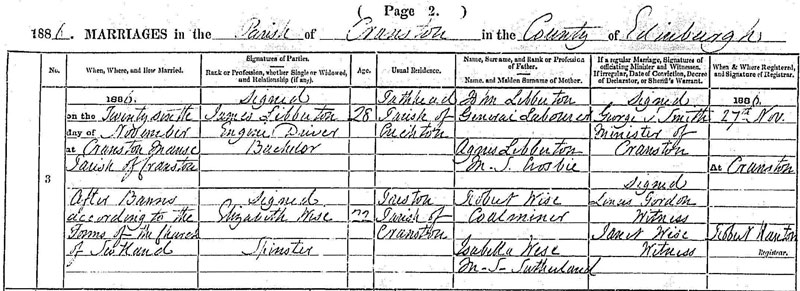 ( Page 2. )
1886. MARRIAGES in the Parish of Cranston in the County of Edinburgh
No.
When, Where, and How Married.
Signatures of Parties.
Rank or Profession, whether Single or Widowed, and Relationship (if any).
Age.
Usual Residence.
Name, Surname, and Rank or Profession of Father.
Name, and Maiden Surname of Mother.
If a regular Marriage, Signatures of officiating Minister and Witnesses.
If irregular, Date of Conviction, Decree of Declarator, or Sheriff's Warrant.
When & Where Registered, and Signature of Registrar.
3
1886.
on the Twenty sixth
day of November
at Cranston Manse
Parish of Cranston
After Banns
according to the
Forms of the Church
of Scotland
Signed
James Libberton
Engine Driver
Bachelor
Signed
Elizabeth Wise
Spinster
28
22
Pathhead
Parish of
Crichton
Parish of
Cranston
John Libberton
General Labourer
Agnes Libberton
M. S. Crosbie
Robert Wise
Coalminer
Isabella Wise
M-S- Sutherland
Signed
George S. Smith
Minister of
Cranston
Signed
Gordon
Witness
Janet Wise
Witness
1886.
27th Nov.
At Cranston
Robert
Registrar.